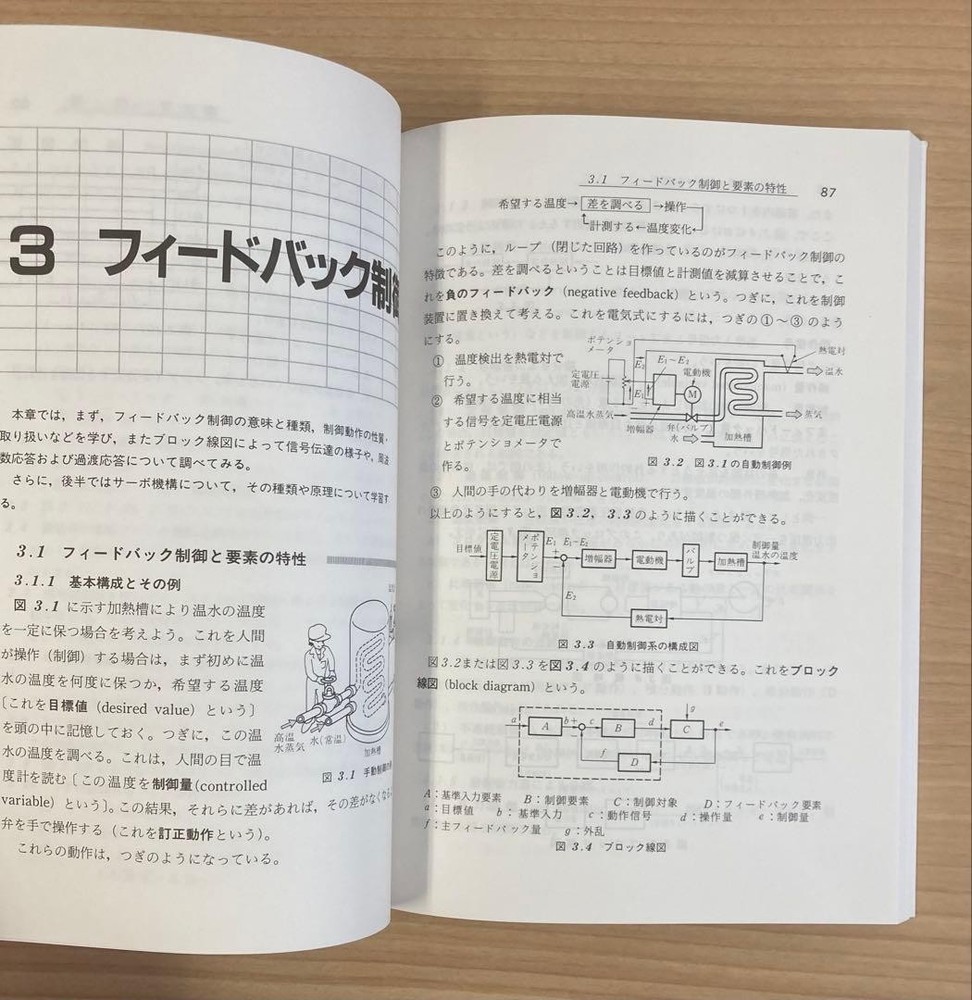 3 フィードバック制御
本章では，まず，フィードバック制御の意味と種類，制御動作の性質・
取り扱いなどを学び，またブロック線図によって信号伝達の様子や，周波
数応答および過渡応答について調べてみる。
さらに，後半ではサーボ機構について，その種類や原理について学習す
る。
3.1 フィードバック制御と要素の特性
3.1.1 基本構成とその例
図 3.1 に示す加熱槽により温水の温度
を一定に保つ場合を考えよう。これを人間
が操作（制御）する場合は，まず初めに温
水の温度を何度に保つか，希望する温度
〔これを目標値（desired value）という〕
を頭の中に記憶しておく。つぎに，この温
水の温度を調べる。これは，人間の目で温
度計を読む〔この温度を制御量(controlled
variable) という〕。この結果，それらに差があれば，その差がなくなる
弁を手で操作する（これを訂正動作という）。
これらの動作は，つぎのようになっている。
高温
水蒸気
水(常温)
加熱槽
図 3.1 手動制御の
3.1 フィードバック制御と要素の特性 87
希望する温度→差を調べる→操作
計測する←温度変化←
このように，ループ（閉じた回路）を作っているのがフィードバック制御の
特徴である。差を調べるということは目標値と計測値を減算させることで，こ
れを負のフィードバック（negative feedback）という。つぎに，これを制御
装置に置き換えて考える。これを電気式にするには，つぎの①～③のよう
にする。
① 温度検出を熱電対で
行う。
② 希望する温度に相当
する信号を定電圧電源
とポテンショメータで
作る。
ポテンショ
メータ
E₁−E₂
E₂
E₁
熱電対
定電圧
電源
電動機
M
温水
高温水蒸気
蒸気
増幅器
弁(バルブ)
水
加熱槽
図 3.2 図 3.1 の自動制御例
③ 人間の手の代わりを増幅器と電動機で行う。
以上のようにすると，図 3.2，3.3 のように描くことができる。
目標値
定電圧電源
ポテンショメータ
E₁
E₁−E₂
+
−
増幅器
電動機
バルブ
加熱槽
制御量
温水の温度
E₂
熱電対
図 3.3 自動制御系の構成図
図 3.2 または図 3.3 を図 3.4 のように描くことができる。これをブロック
線図（block diagram）という。
a
A
b
+
−
c
B
d
g
C
e
f
D
A：基準入力要素 B：制御要素 C：制御対象 D：フィードバック要素
a：目標値 b：基準入力 c：動作信号 d：操作量 e：制御量
f：主フィードバック量 g：外乱
図 3.4 ブロック線図